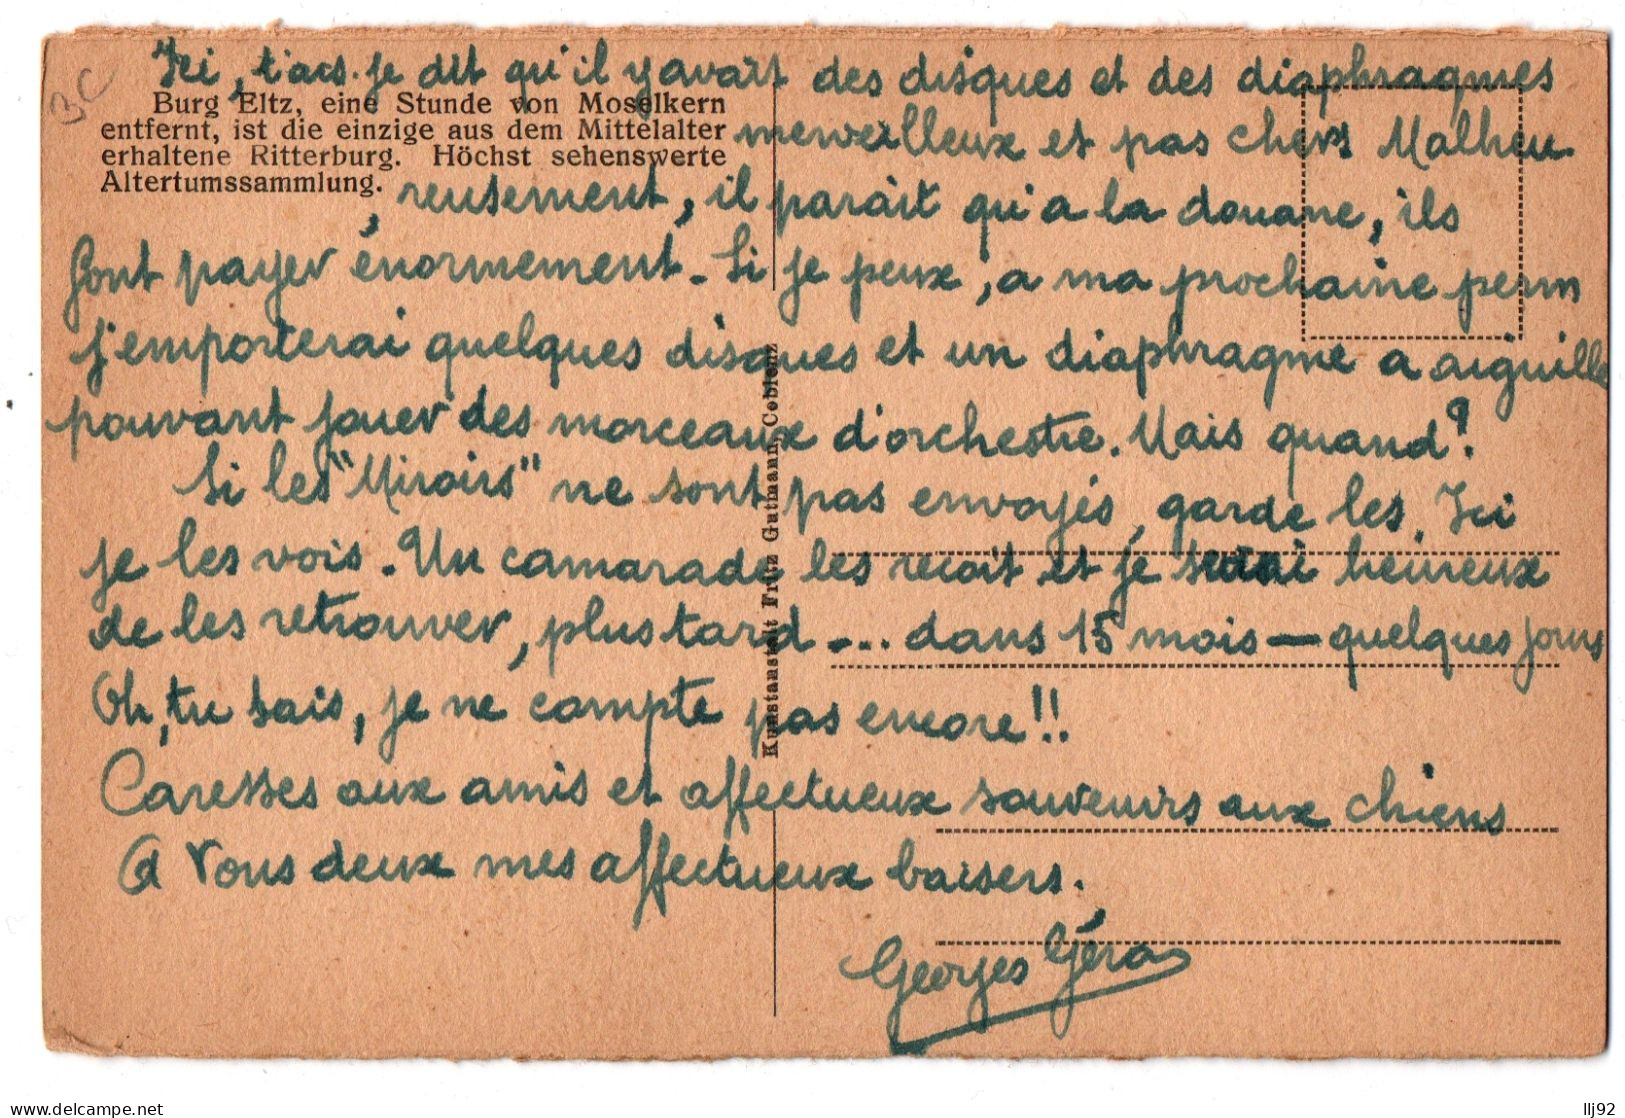 BC
Ici, t'ais-je dit qu'il y avait des disques et des diaphragmes
Burg Eltz, eine Stunde von Moselkern
entfernt, ist die einzige aus dem Mittelalter
erhaltene Ritterburg. Höchst sehenswerte
Altertumssammlung.
merveilleux et pas chers Malheu
reusement, il parait qu'a la douane, ils
font payer énormement. Si je peux, a ma prochaine perm
j'emporterai quelques disques et un diaphragme a aiguille
pouvant jouer des morceaux d'orchestre. Mais quand?
Si les "Miroirs" ne sont pas envoyés, garde les. Ici
je les vois. Un camarade les recoit et je serai heureux
de les retrouver, plus tard ... dans 15 mois — quelques jours
Oh, tu sais, je ne compte pas encore!!
Caresses aux amis et affectueux souvenirs aux chiens
A Vous deux mes affectueux baisers.
Georges Géra
Kunstanstalt Fritz Gutmann, Coblenz
delcampe.net
llj92